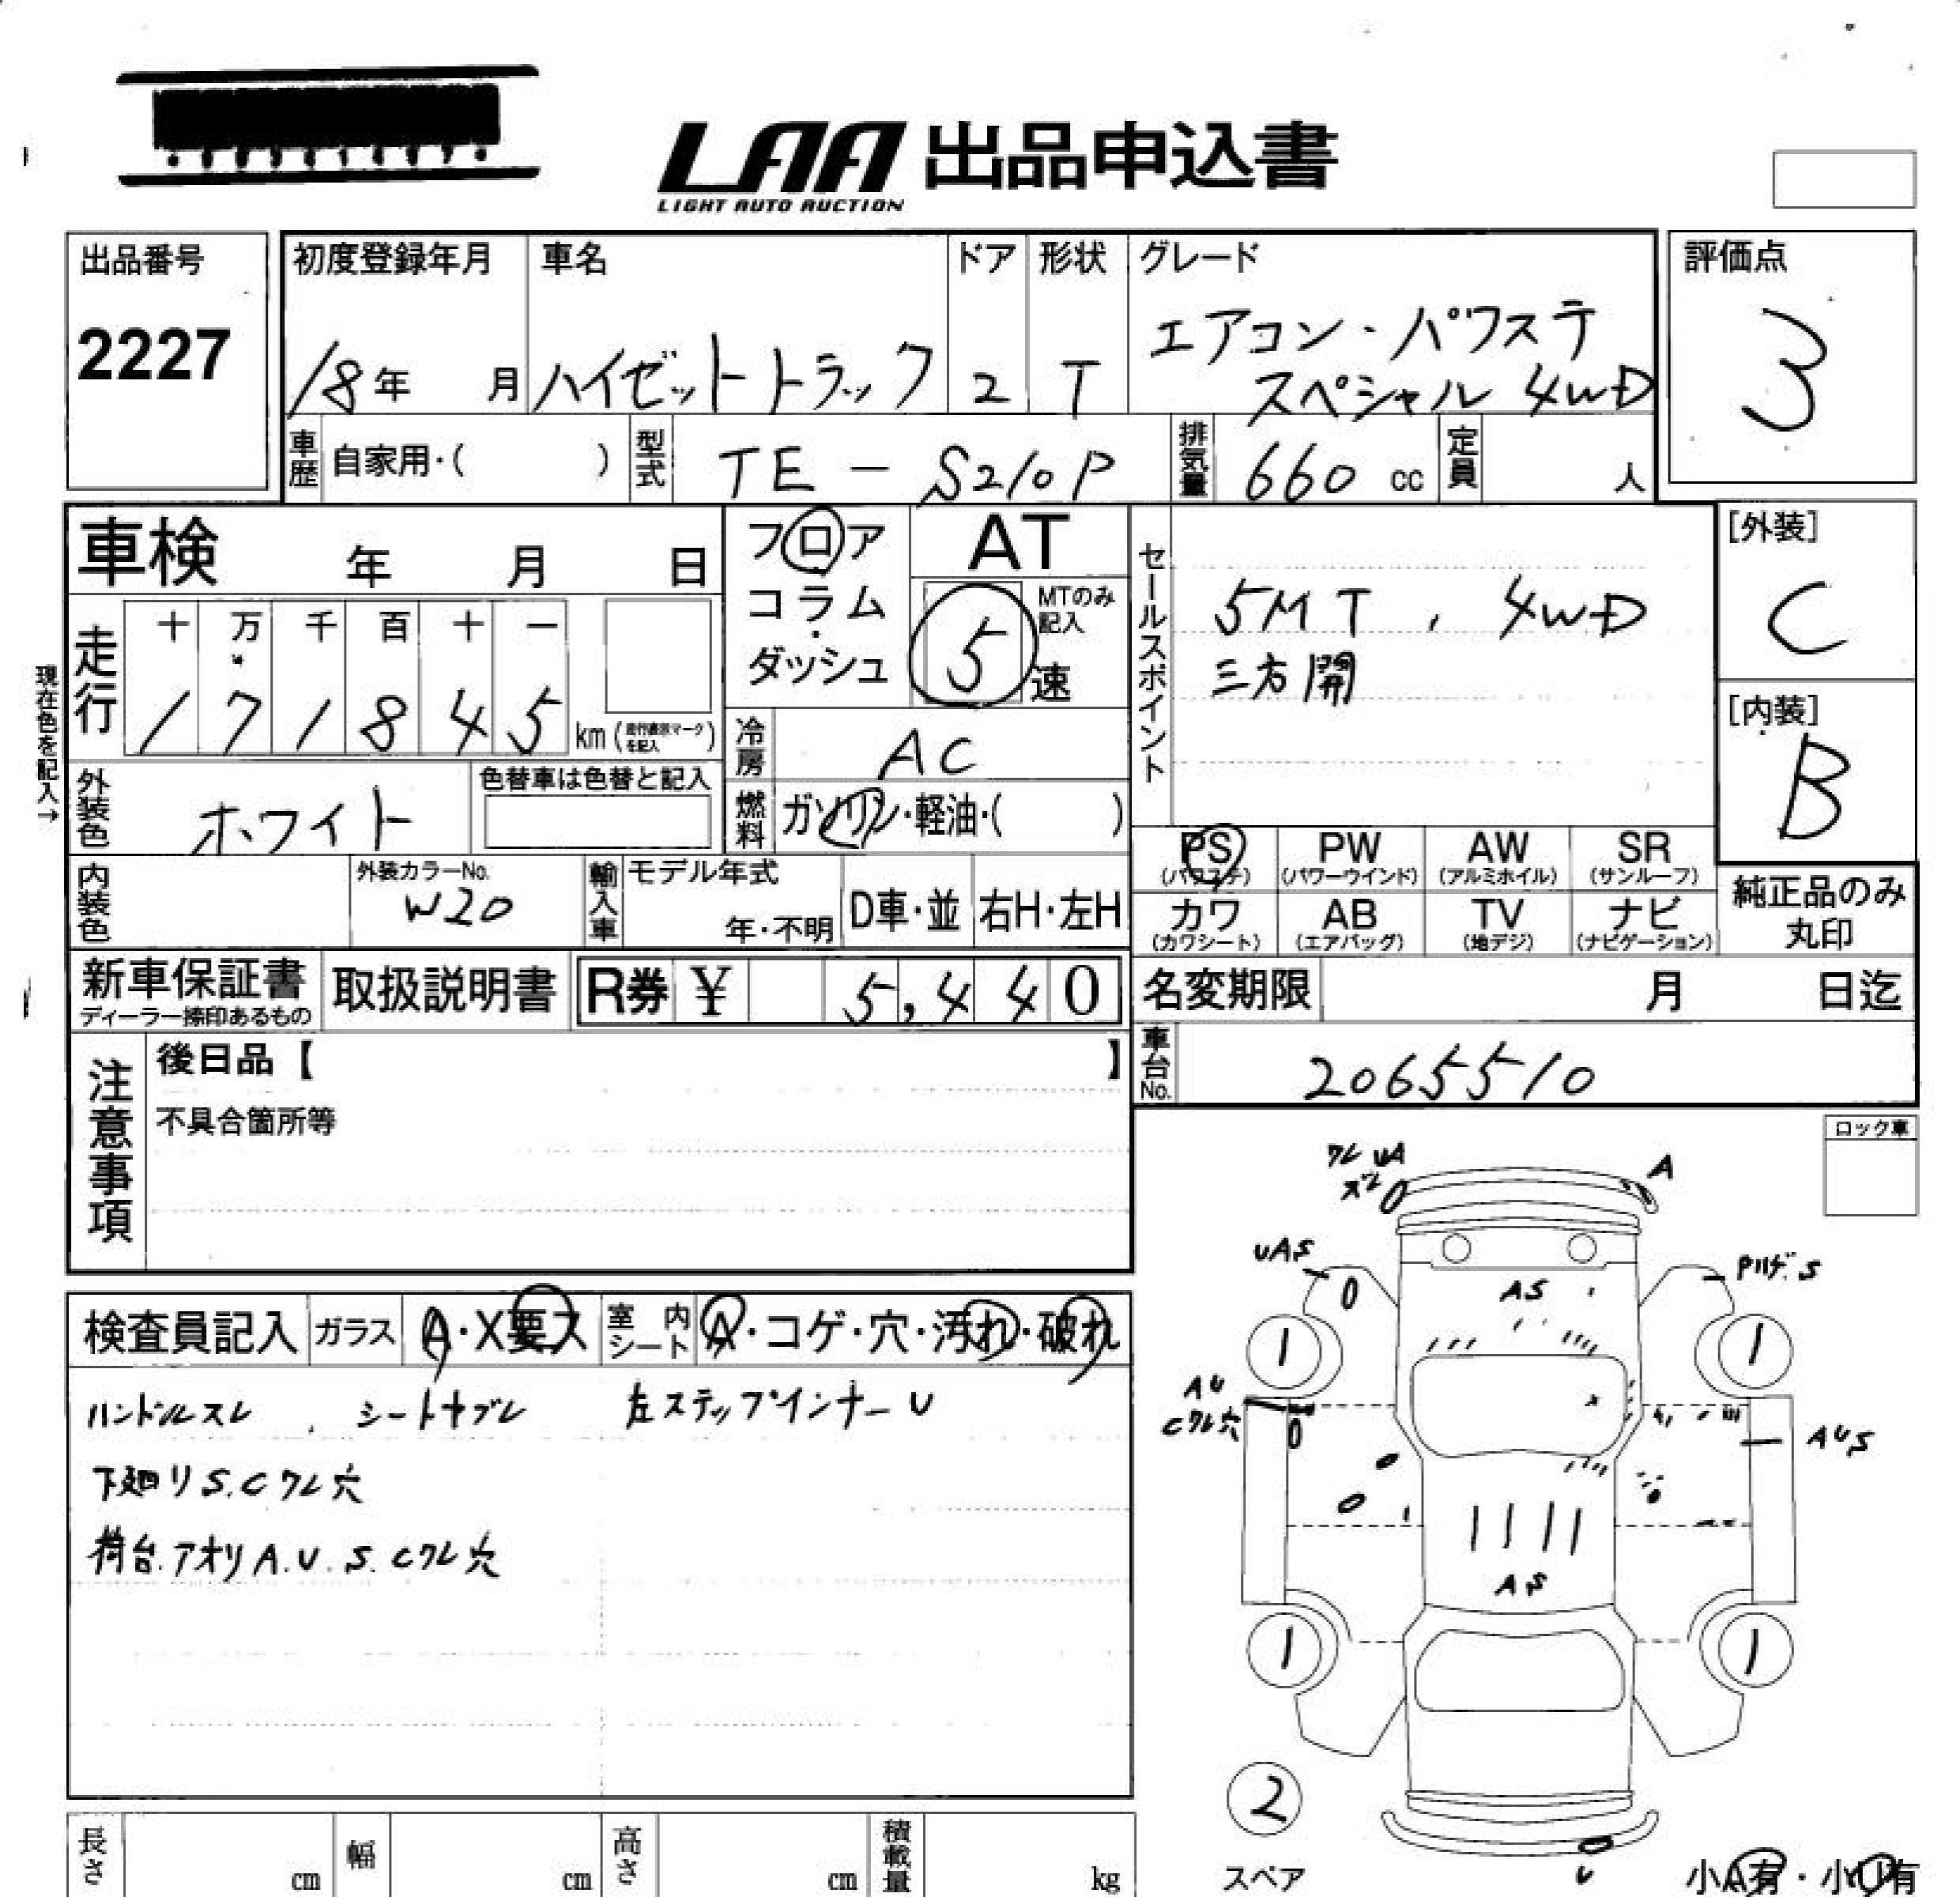 LAA 出品申込書
LIGHT AUTO AUCTION
出品番号
2227
初度登録年月
18年 月
車名
ハイゼットトラック
ドア
2
形状
T
グレード
エアコン・パワステ
スペシャル 4WD
評価点
3
車歴 自家用・( )
型式 TE - S210P
排気量 660 cc
定員 人
車検 年 月 日
フロア
コラム
・
ダッシュ
AT
5 速
MTのみ
記入
セールスポイント
5MT , 4WD
三方開
[外装]
C
[内装]
B
現在色を記入→
走行
十 万 千 百 十 一
1 7 1 8 4 5 km (走行表示マークを記入)
冷房 AC
燃料 ガソリン・軽油・( )
外装色 ホワイト
色替車は色替と記入
内装色
外装カラーNo.
W20
輸入車
モデル年式
年・不明
D車・並
右H・左H
PS
(パワステ)
PW
(パワーウインド)
AW
(アルミホイル)
SR
(サンルーフ)
カワ
(カワシート)
AB
(エアバッグ)
TV
(地デジ)
ナビ
(ナビゲーション)
純正品のみ
丸印
新車保証書
ディーラー捺印あるもの
取扱説明書
R券 ¥ 5,440
名変期限 月 日迄
車台No. 2065510
注意事項
後日品【 】
不具合箇所等
ロック車
検査員記入
ガラス A・X要ス
室内シート A・コゲ・穴・汚れ・破れ
ハンドルスレ , シートヤブレ 左ステップインナーU
下廻りS.Cワレ穴
荷台.アオリA.U.S.Cワレ穴
ワレ UA
A
UAS
S
AS
1
1
AU
Cワレ穴
AUS
AS
1
1
2
スペア
U
小A有・小U有
長さ cm
幅 cm
高さ cm
積載量 kg